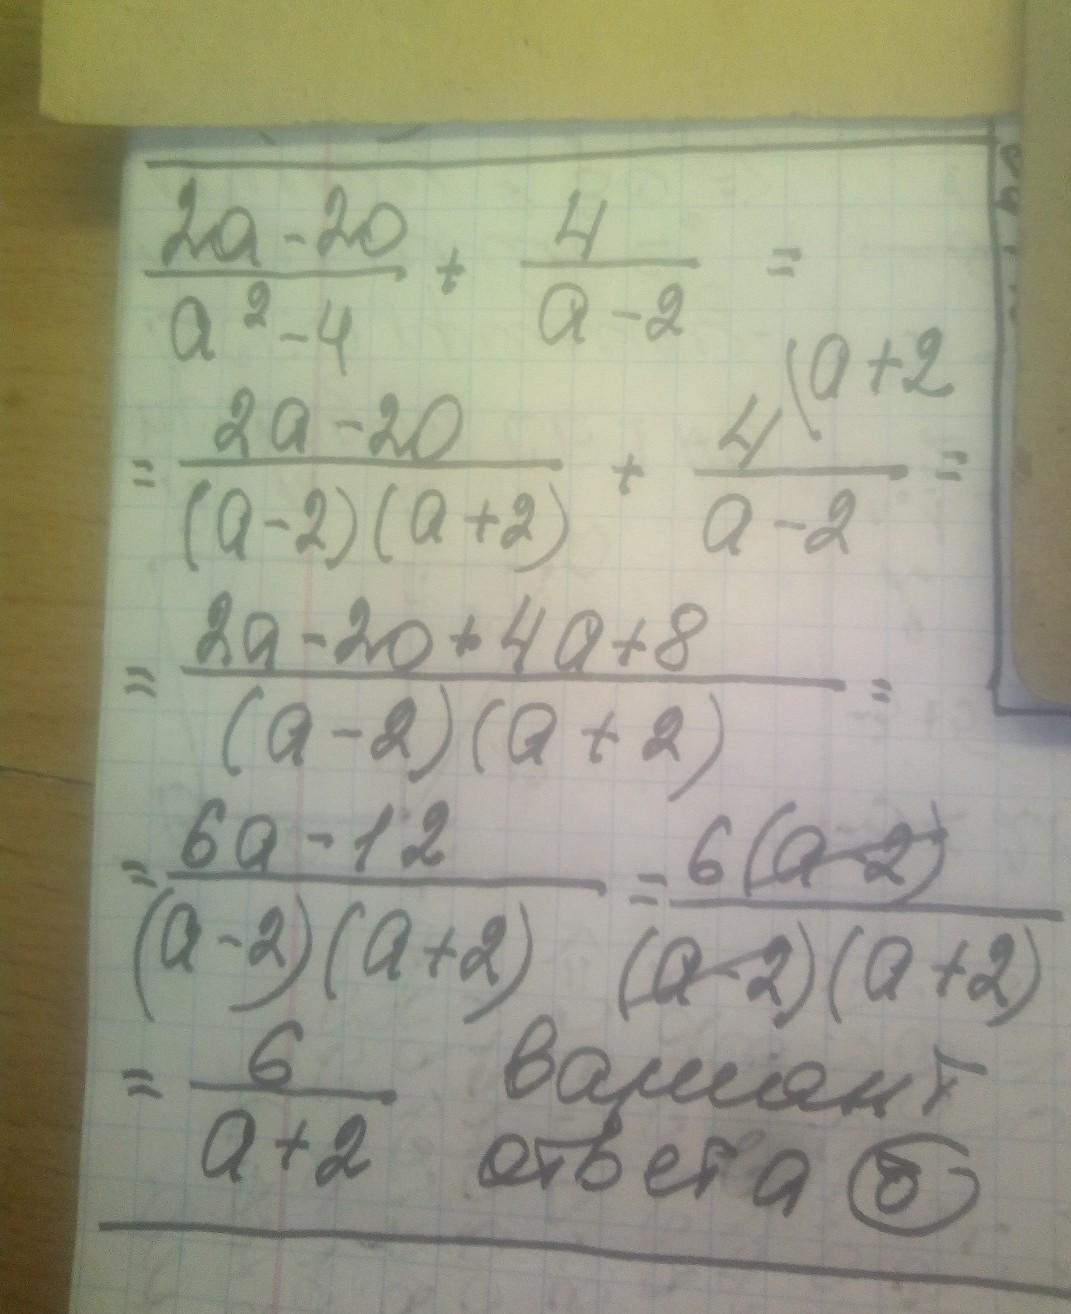 (2a-20)/(a²-4) + 4/(a-2) =
= (2a-20)/((a-2)(a+2)) + 4(a+2/(a-2) =
= (2a-20+4a+8)/((a-2)(a+2)) =
= (6a-12)/((a-2)(a+2)) = 6(a-2)/((a-2)(a+2))
= 6/(a+2) вариант
ответа б